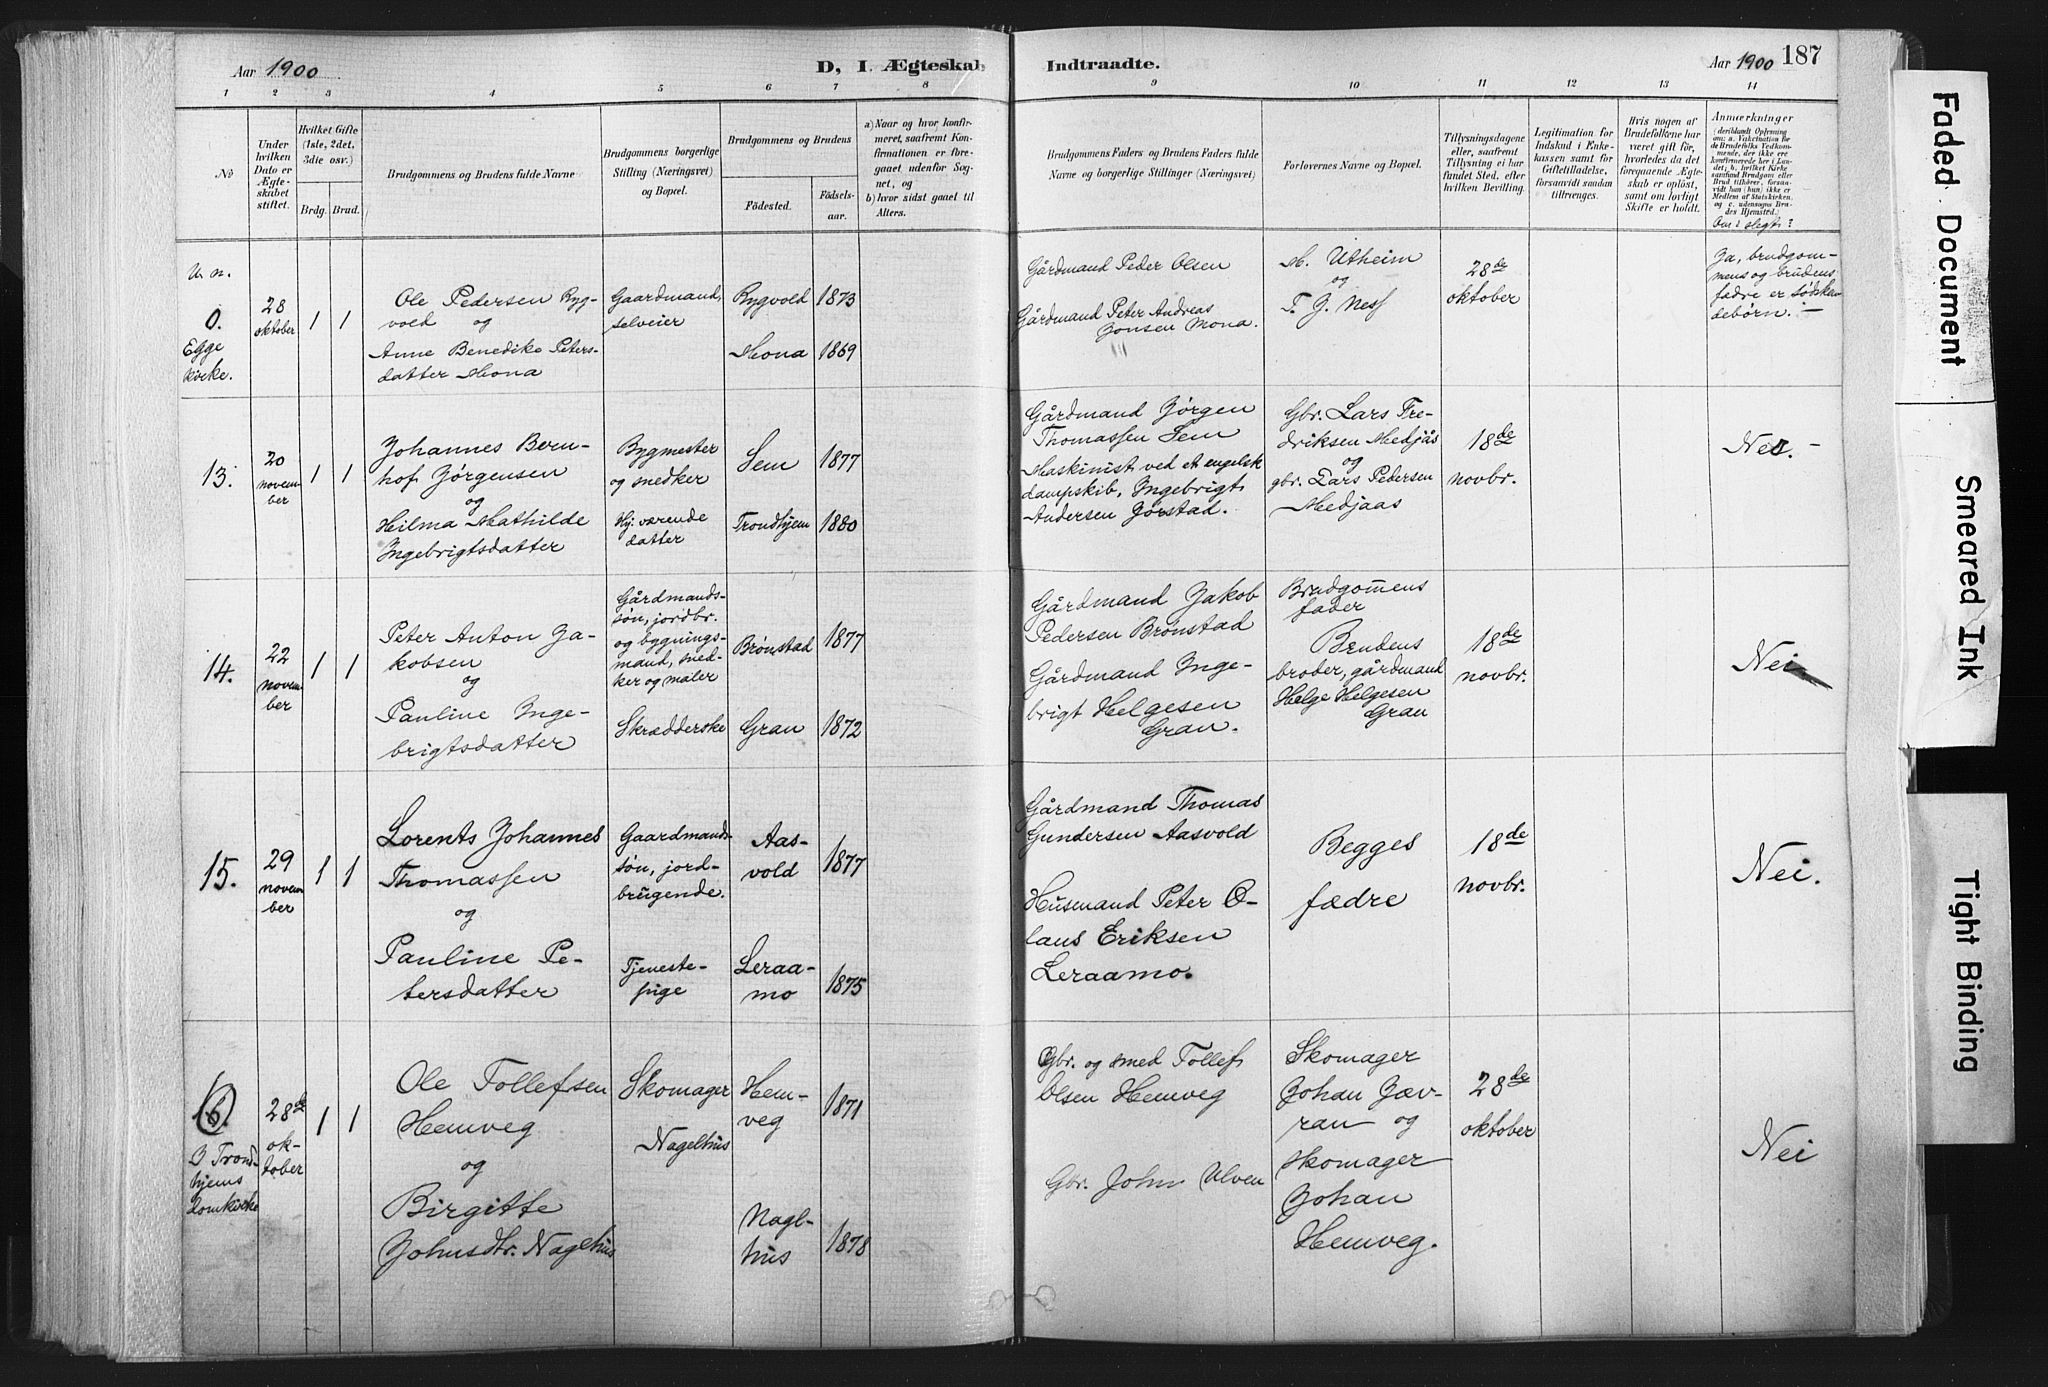 Aar 1900
D, I. Ægteskab
Indtraadte.
Aar 1900
187
1 2 3 4 5 6 7 8 9 10 11 12 13 14
No
Under
hvilken
Dato er
Ægte-
skabet
stiftet.
Hvilket Gifte
(1ste, 2det,
3die osv.)
Brdg.
Brud.
Brudgommens og Brudens fulde Navne
Brudgommens borgerlige
Stilling (Næringsvei)
og Bopæl.
Brudgommens og Brudens
Fødested.
Fødsels-
aar.
a) Naar og hvor konfir-
meret, saafremt Kon-
firmationen er fore-
gaaet udenfor Sog-
net, og
b) hvor sidst gaaet til
Alters.
Brudgommens Faders og Brudens Faders fulde
Navne og borgerlige Stillinger (Næringsvei)
Forlovernes Navne og Bopæl.
Tillysningsdagene
eller, saafremt
Tillysning ei har
fundet Sted, efter
hvilken Bevilling.
Legitimation for
Indskud i Enke-
kassen samt for
Giftetilladelse,
forsaavidt saadan
tiltrænges.
Hvis nogen af
Brudefolkene har
været gift før,
hvorledes da det
foregaaende Ægte-
skab er opløst,
samt om lovligt
Skifte er holdt.
Anmærkninger
(deriblandt Oplysning
om: a. Vakcination for
de Brudefolks Vedkom-
mende, der ikke ere
konfirmerede her i Lan-
det; b. hvilket Kirke
samfund Brudgom eller
Brud tilhører, forsaa-
vidt han (hun) ikke er
Medlem af Statskirken,
og c. udensogns Bru-
des Hjemsted.
Om i slegt?
U. n.
0.
Egge
kirke.
28
oktober
1 1
Ole Pedersen Ryg-
vold og
Anne Benedike Peters-
datter Mona
Gaardmand,
selveier
Rygvold
Mona
1873
1869
Gårdmand Peder Olsen
Gårdmand Peter Andreas
Jonsen Mona.
M. Utheim
og
T. J. Ness
28de
oktober
Ja, brudgom-
mens og brudens
fædre er sødsken-
debørn. —
13.
20
novem-
ber
1 1
Johannes Bern-
hof Jørgensen
og
Hilma Mathilde
Ingebrigtsdatter
Bygmester
og snedker
Hj. værende
datter
Sem
Trondhjem
1877
1880
Gårdmand Jørgen
Thomassen Sem
Maskinist ved et engelsk
dampskib, Ingebrigt
Andersen Jørstad.
Gbr. Lars Fre-
driksen Medjås
og
gbr. Lars Pedersen
Medjaas
18de
novbr.
Nei. —
14.
22
novem-
ber
1 1
Peter Anton Ja-
kobsen
og
Pauline Inge-
brigtsdatter
Gårdmands-
søn, jordbr.
og bygnings-
mand, sned-
ker og maler
Skrædderske
Brønstad
Gran
1877
1872
Gårdmand Jakob
Pedersen Brønstad
Gårdmand Inge-
brigt Helgesen
Gran.
Brudgom̄ens
fader
Brudens
broder, gårdmand
Helge Helgesen
Gran
18de
novbr.
Nei
15.
29
novem
ber
1 1
Lorents Johannes
Thomassen
og
Pauline Pe-
tersdatter
Gaardmands-
søn, jord-
brugende.
Tjeneste-
pige
Aas-
vold
Leraa-
mo
1877
1875
Gårdmand Thomas
Gundersen Aasvold
Husmand Peter O-
laus Eriksen
Leraamo.
Begges
fædre
18de
novbr.
Nei.
16.
I Trond-
hjems
Domkirke
28de
ok-
tober
1 1
Ole Tollefsen
Hemveg
og
Birgitte
Johnsdtr. Nagelhus
Skomager
Nagelhus
Hem-
veg
Nagl-
hus
1871
1878
Gbr. og smed Tollef
Olsen Hemveg
Gbr. John Ulven
Skomager
Johan Jæv-
ran og
skomager
Johan
Hemveg.
28de
oktober
Nei
Faded Document
Smeared Ink
Tight Binding